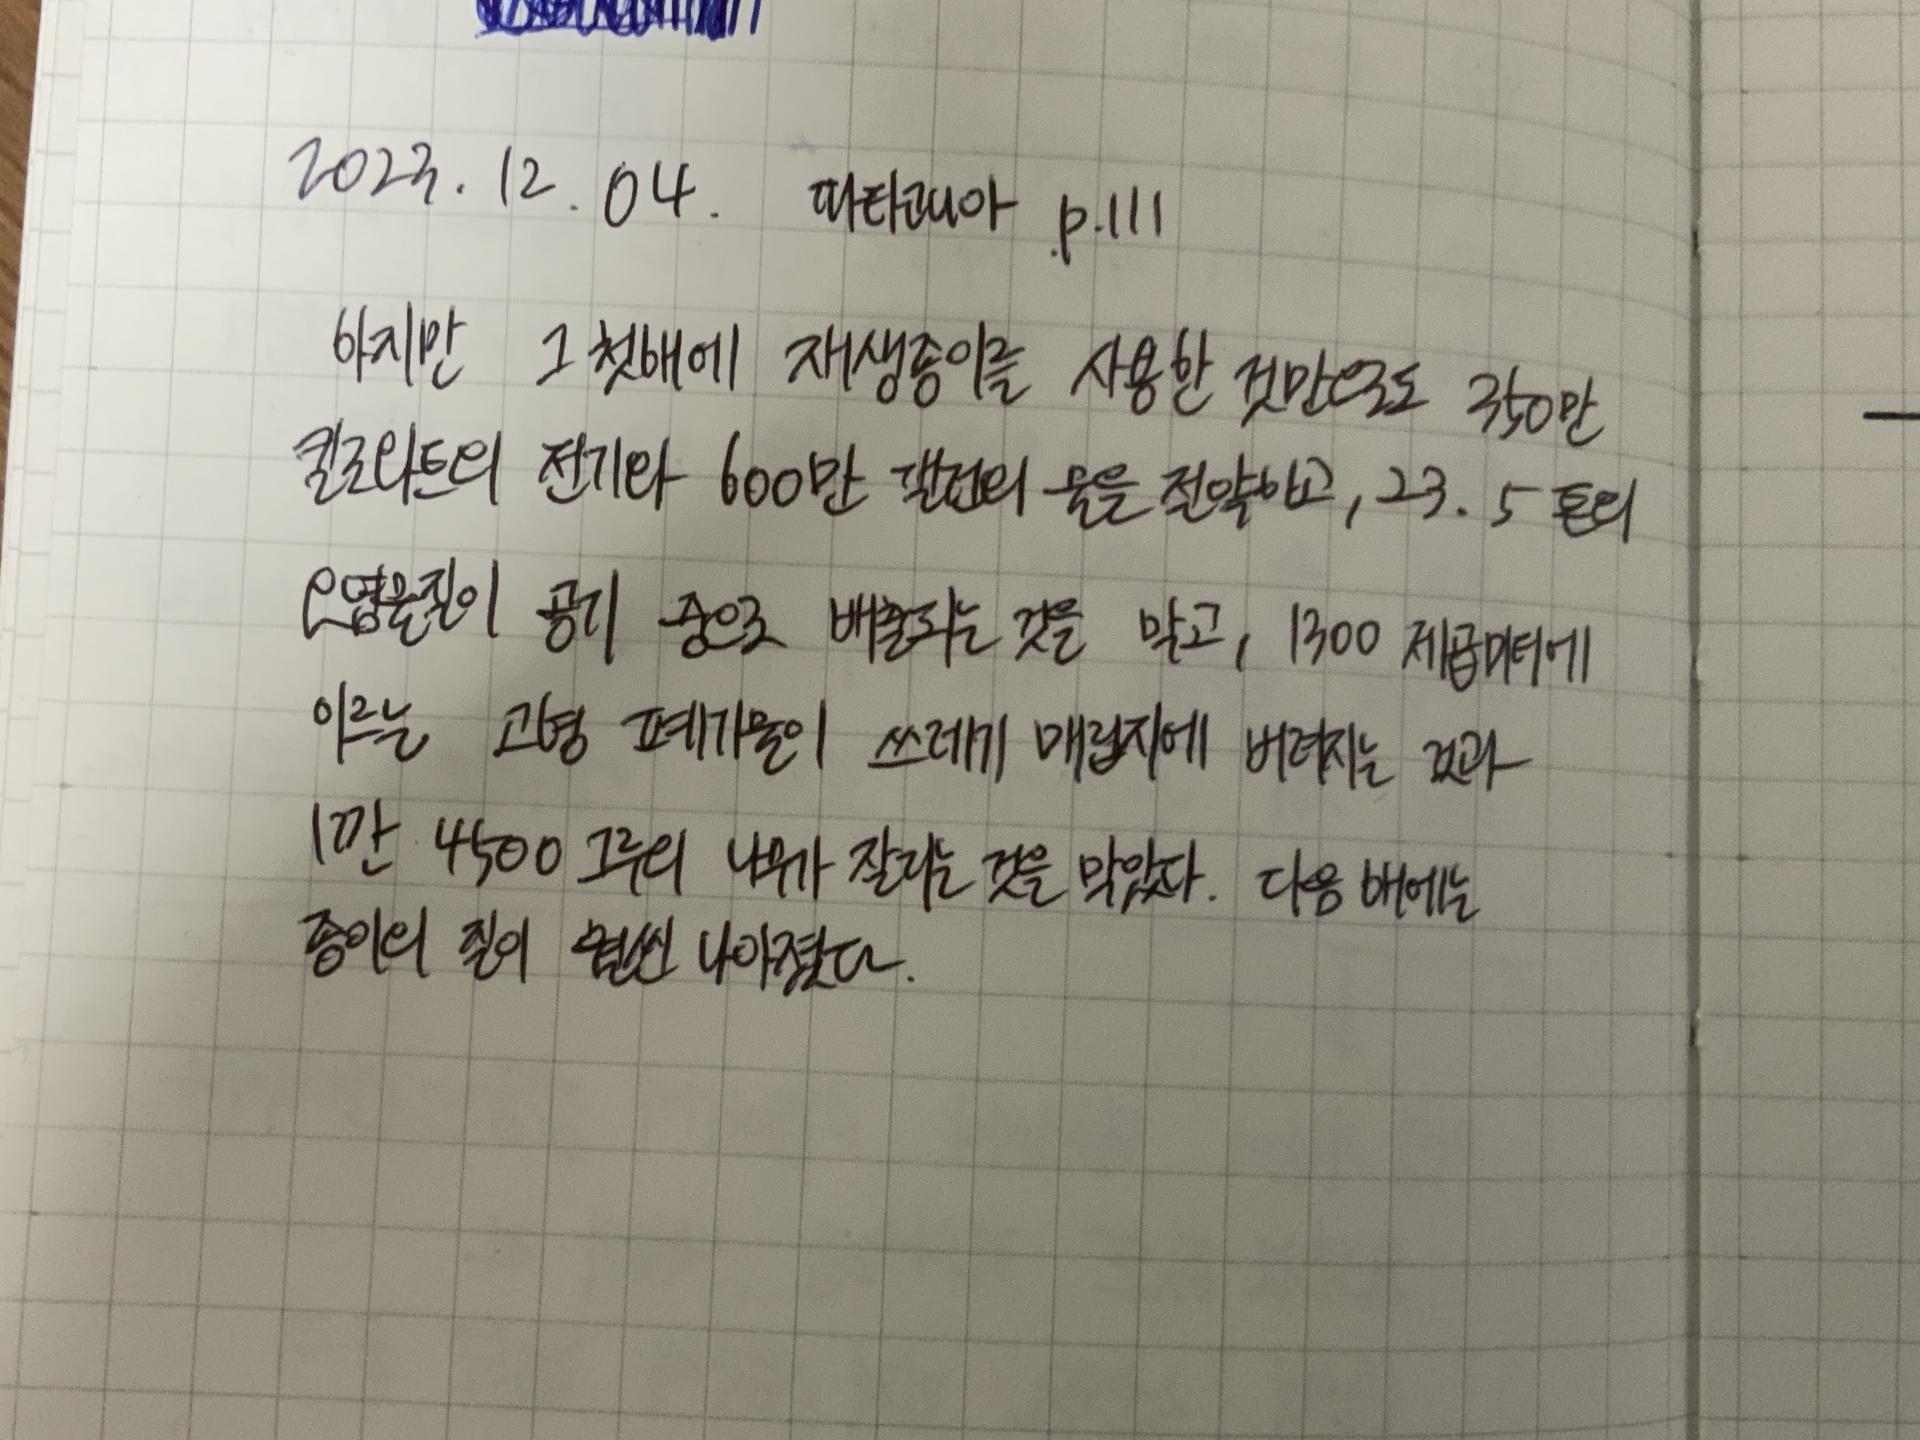 2023. 12. 04. 파타고니아 p.111
하지만 그 첫해에 재생종이를 사용한 것만으로도 350만
킬로와트의 전기와 600만 갤런의 물을 절약하고, 23.5톤의
오염물질이 공기 중으로 배출되는 것을 막고, 1300 제곱미터에
이르는 고형 폐기물이 쓰레기 매립지에 버려지는 것과
1만 4500 그루의 나무가 잘리는 것을 막았다. 다음 해에는
종이의 질이 훨씬 나아졌다.